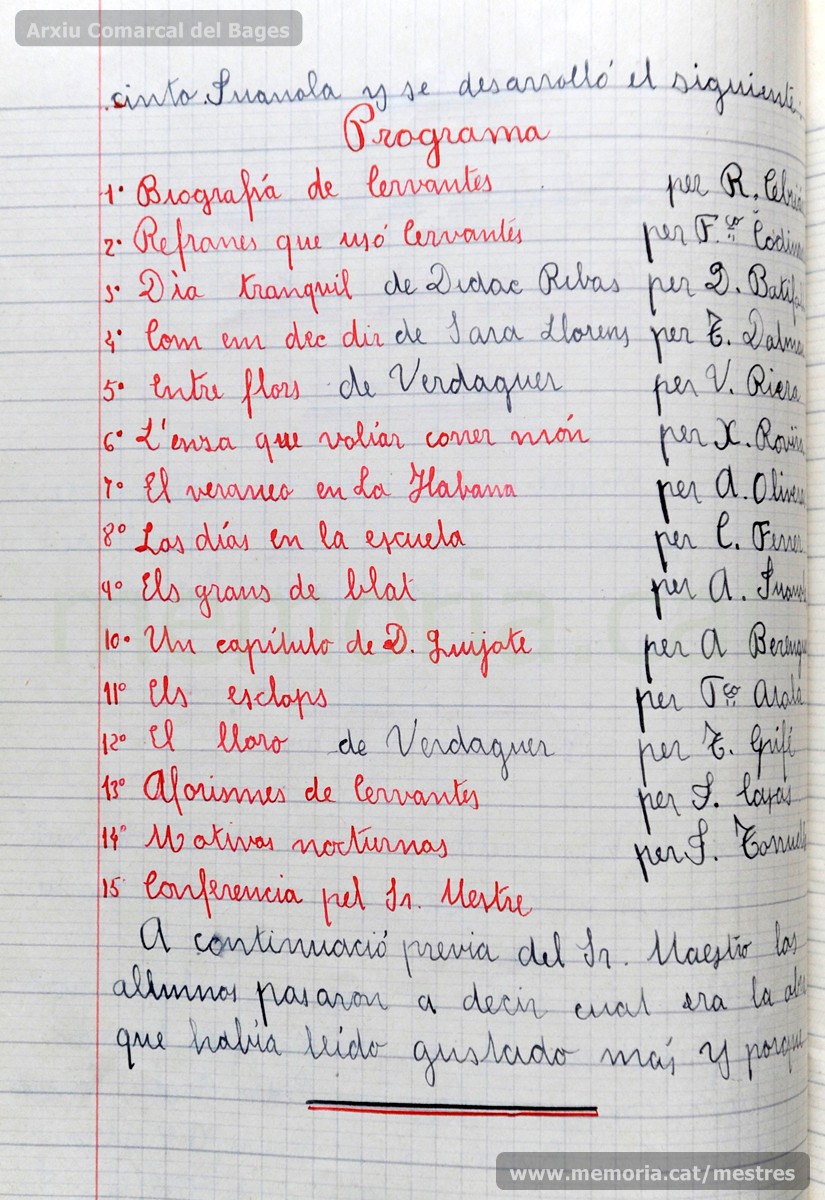 Arxiu Comarcal del Bages
cinto Juanola y se desarrolló el siguiente:
Programa
1º Biografía de Cervantes per R. Cebriá
2º Refranes que usó Cervantes per F.co Codina
3º Dia tranquil de Didac Ribas per D. Batifol
4º Com em dec dir de Sara Llorens per E. Dalmau
5º Entre flors de Verdaguer per V. Riera
6º L'ensa que voliar correr món per X. Rovira
7º El veraneo en La Habana per A. Olivera
8º Los días en la escuela per C. Ferrer
9º Els grans de blat per A. Juanol
10º Un capítulo de D. Quijote per A Berengu
11º Els esclops per Fco Arala
12º El lloro de Verdaguer per E. Grifé
13º Aforismes de Cervantes per S. Casas
14º Motivos nocturnos per J.
15 Conferencia pel Sr. Mestre
A continuació previa del Sr. Maestro los
allumnos pasaron a decir cual era la
que había leído gustado más y porque
www.memoria.cat/mestres